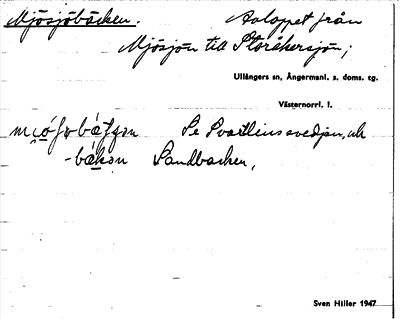 Mjösjöbäcken. Avloppet från
Mjösjön till Storåkersjön;
Ullångers sn, Ångermanl. s. doms. tg.
Västernorrl. l.
Se Svartlinsavedjan, och
-bäkən Sandbacken,
Sven Hiller 1947